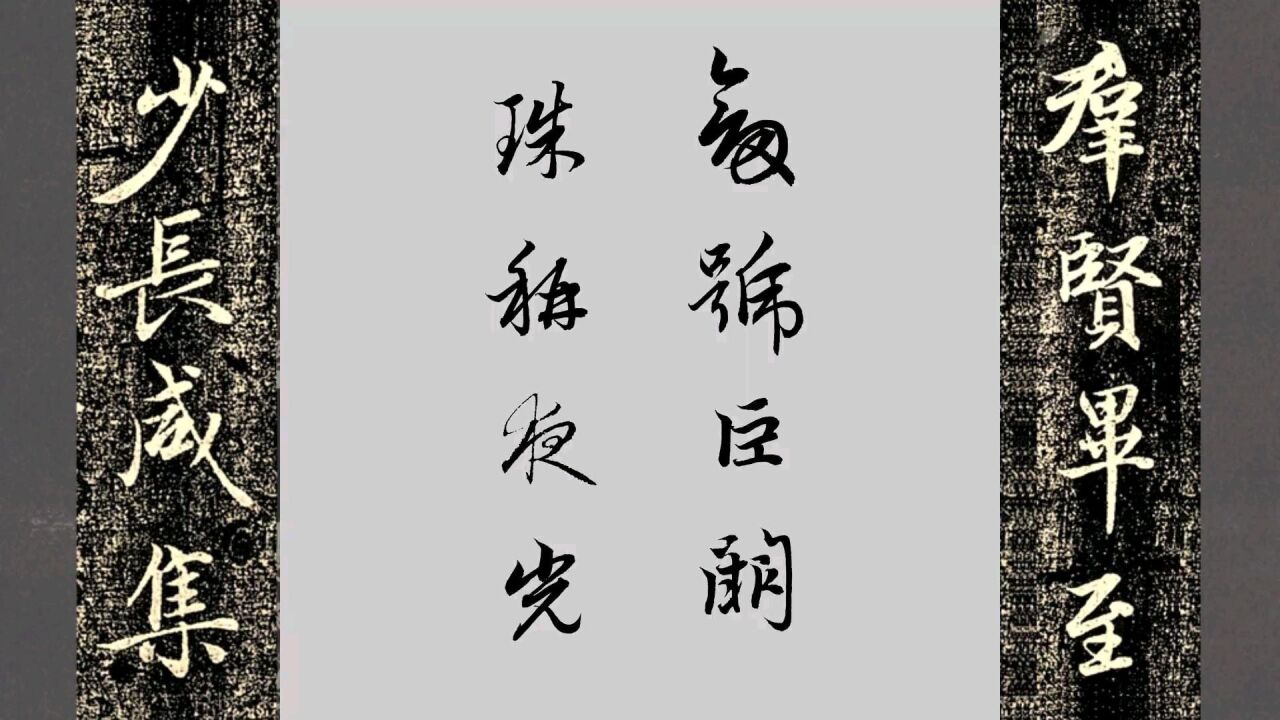 羣賢畢至
劍號巨闕
珠稱夜光
少長咸集